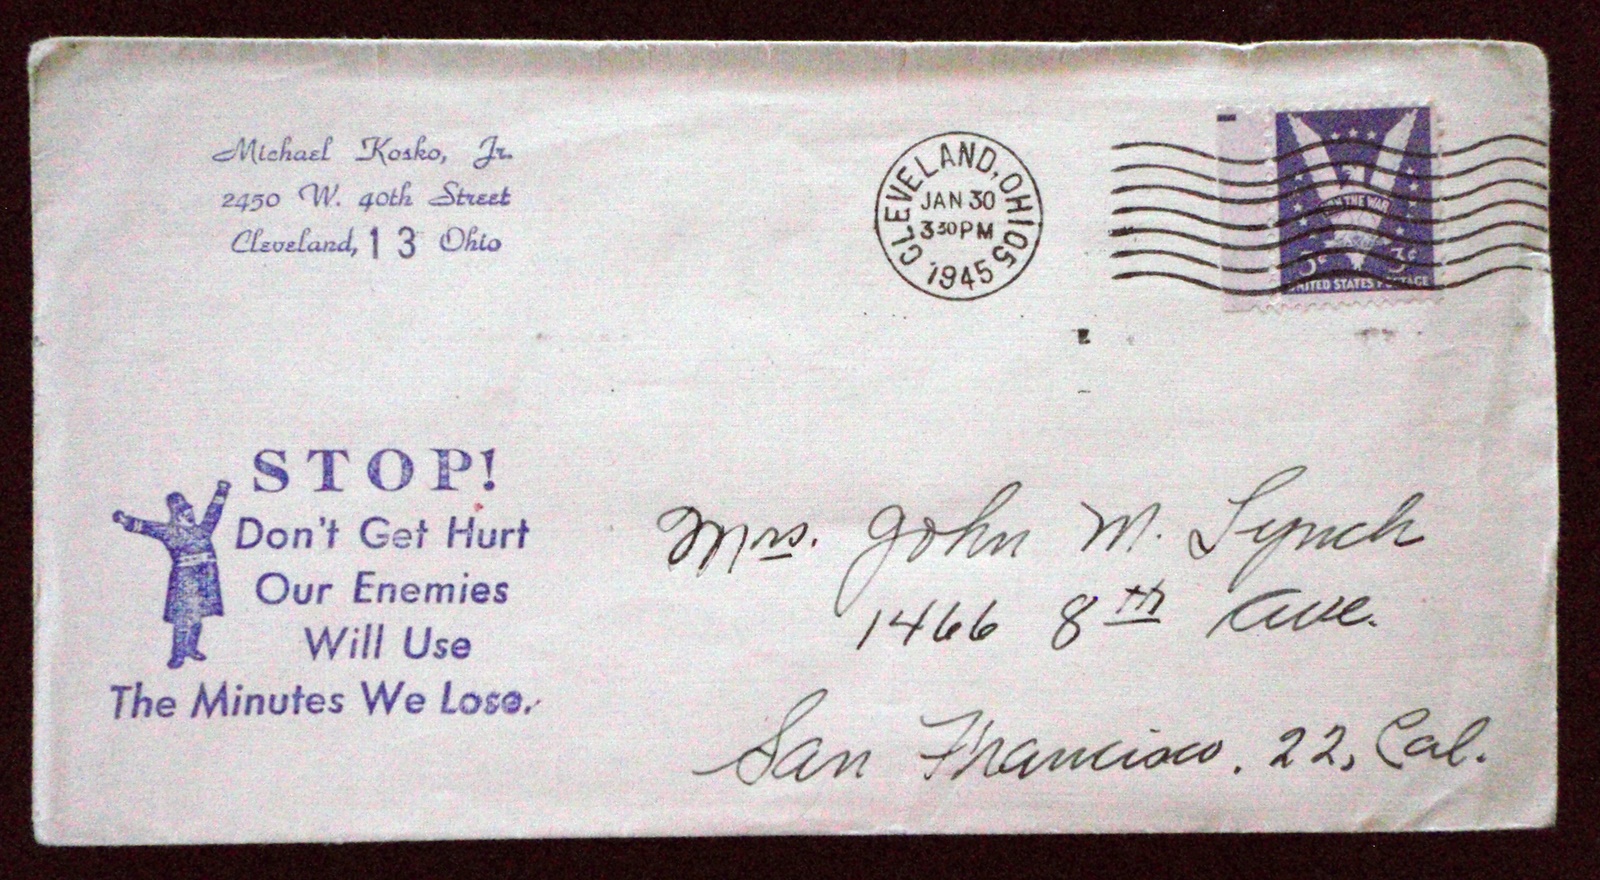 Michael Kosko, Jr.
2450 W. 40th Street
Cleveland, 13 Ohio
CLEVELAND, OHIO 5
JAN 30
3 30 PM
1945
WIN THE WAR
3¢ 3¢
UNITED STATES POSTAGE
STOP!
Don't Get Hurt
Our Enemies
Will Use
The Minutes We Lose.
Mrs. John M. Lynch
1466 8th Ave.
San Francisco. 22, Cal.